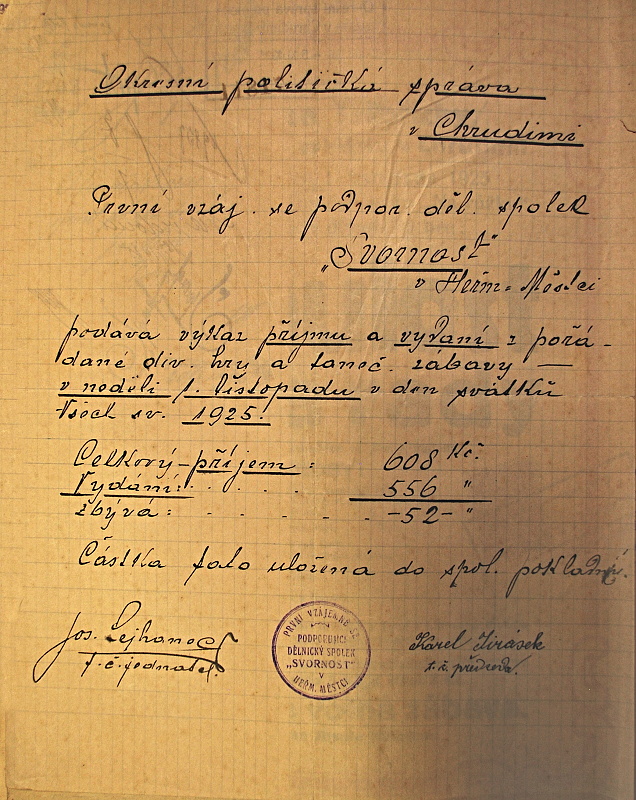 Okresní politická správa
v Chrudimi
První vzáj. se podpor. děl. spolek
„Svornost"
v Heřm. Městci
podává výkaz příjmu a vydaní z pořá-
dané div. hry a taneč. zábavy —
v neděli 1. listopadu v den svátků
Všech sv. 1925.
Celkový-příjem : 608 Kč.
Vydání: . . . . . 556 "
zbývá: . . . . -52- "
Částka tato uložená do spol. pokladny.
Jos. Lejhanec
t. č. jednatel.
PRVNÍ VZÁJEMNĚ SE
PODPORUJÍCÍ
DĚLNICKÝ SPOLEK
„SVORNOST"
V
HEŘM. MĚSTCI
Karel Jirásek
t. č. předseda.